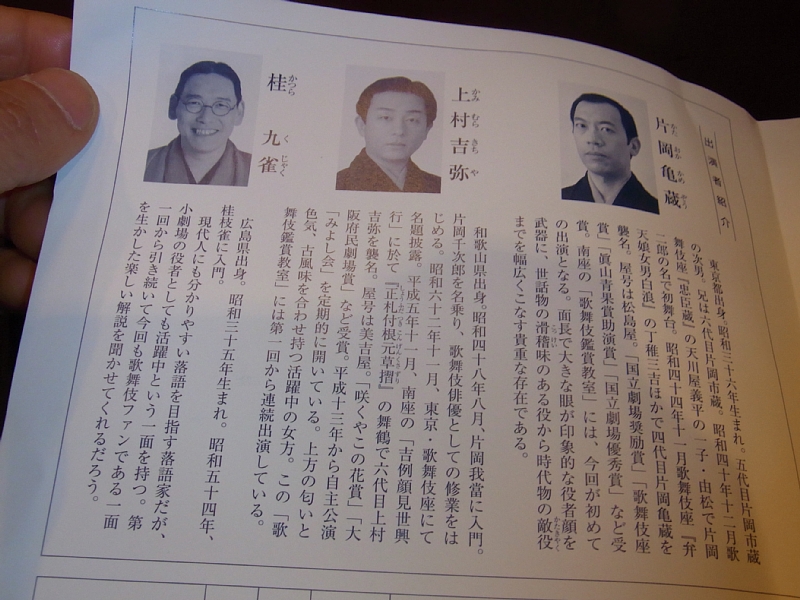 出演者紹介
片岡亀蔵
かた おか かめ ぞう
東京都出身。昭和三十六年生まれ。五代目片岡市蔵
の次男。兄は六代目片岡市蔵。昭和四十年十二月歌
舞伎座『忠臣蔵』の天川屋義平の一子・由松で片岡
二郎の名で初舞台。昭和四十四年十一月歌舞伎座『弁
天娘女男白浪』の丁稚三吉ほかで四代目片岡亀蔵を
襲名。屋号は松島屋。「国立劇場奨励賞」「歌舞伎座
賞」「眞山青果賞助演賞」「国立劇場優秀賞」など受
賞。南座の「歌舞伎鑑賞教室」には、今回が初めて
の出演となる。面長で大きな眼が印象的な役者顔を
武器に、世話物の滑稽味のある役から時代物の敵役
こっけい
かたきやく
までを幅広くこなす貴重な存在である。
上村吉弥
かみ むら きち や
和歌山県出身。昭和四十八年八月、片岡我當に入門。
片岡千次郎を名乗り、歌舞伎俳優としての修業をは
じめる。昭和六十二年十一月、東京・歌舞伎座にて
名題披露。平成五年十一月、南座の「吉例顔見世興
行」に於て『正札付根元草摺』の舞鶴で六代目上村
しょうふだつきこんげんくさずり
吉弥を襲名。屋号は美吉屋。「咲くやこの花賞」「大
阪府民劇場賞」など受賞。平成十三年から自主公演
「みよし会」を定期的に開いている。上方の匂いと
色気、古風味を合わせ持つ活躍中の女方。この「歌
舞伎鑑賞教室」には第一回から連続出演している。
桂 九雀
かつら く じゃく
広島県出身。昭和三十五年生まれ。昭和五十四年、
桂枝雀に入門。
現代人にも分かりやすい落語を目指す落語家だが、
小劇場の役者としても活躍中という一面を持つ。第
一回から引き続いて今回も歌舞伎ファンである一面
を生かした楽しい解説を聞かせてくれるだろう。